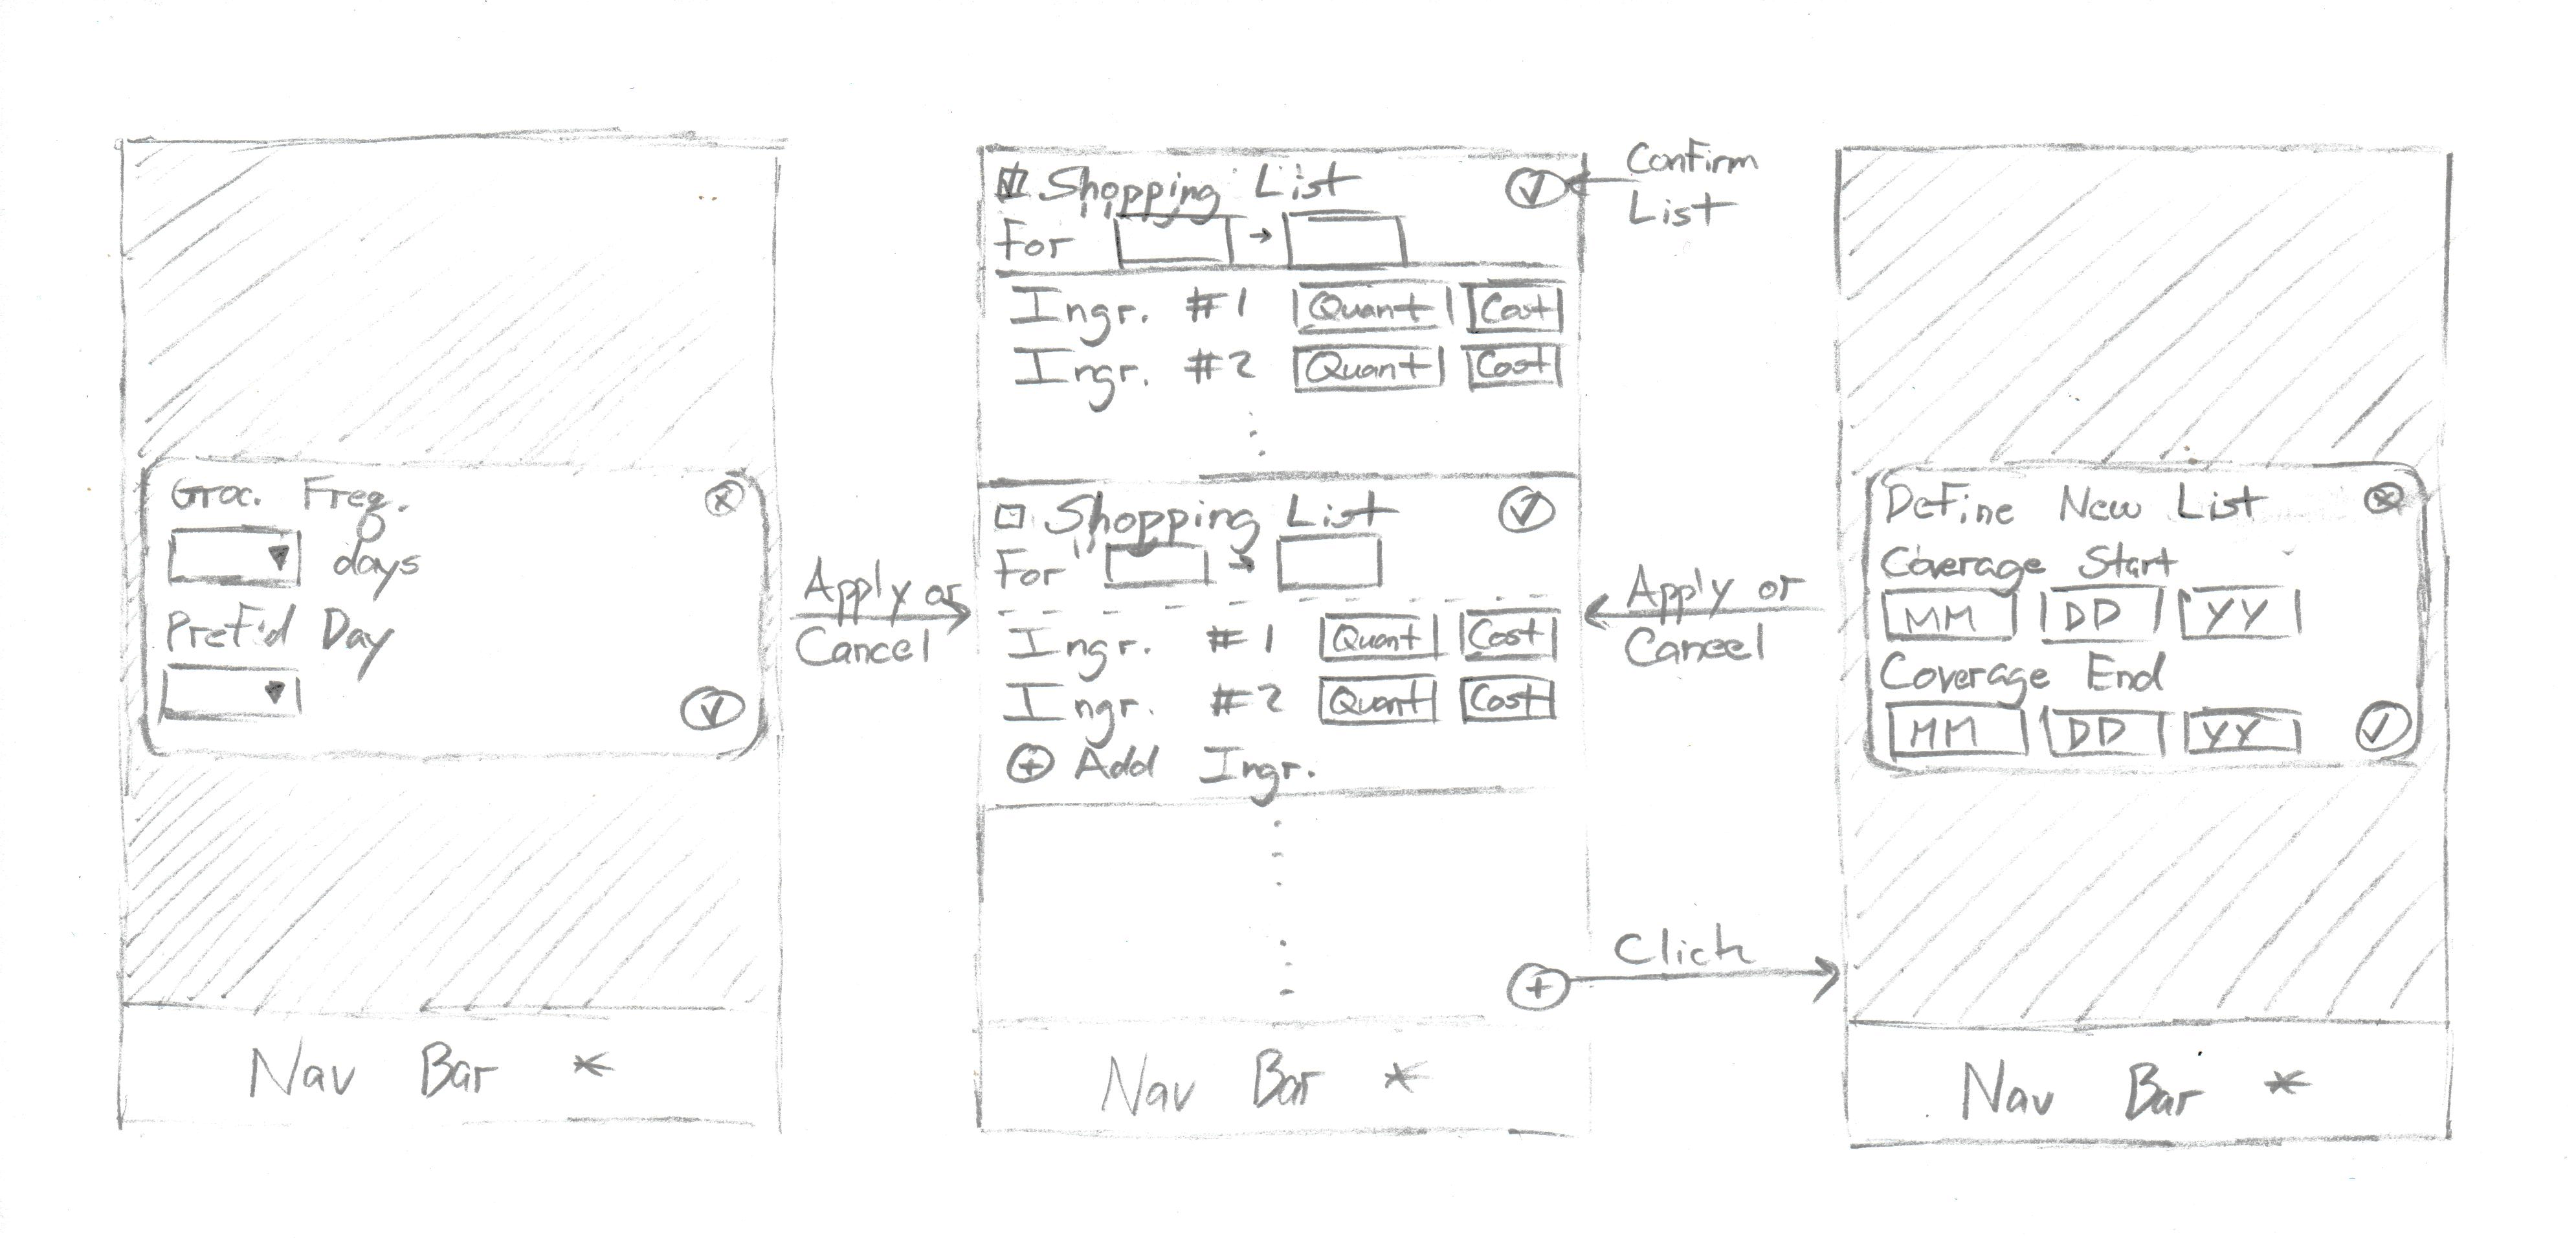 Groc. Freq.
days
Pref'd Day
Nav Bar *
Apply or
Cancel
Shopping List
For →
Ingr. #1 Quant Cost
Ingr. #2 Quant Cost
Shopping List
For →
Ingr. #1 Quant Cost
Ingr. #2 Quant Cost
+ Add Ingr.
Nav Bar *
Confirm
List
Apply or
Cancel
Click
Define New List
Coverage Start
MM DD YY
Coverage End
MM DD YY
Nav Bar *